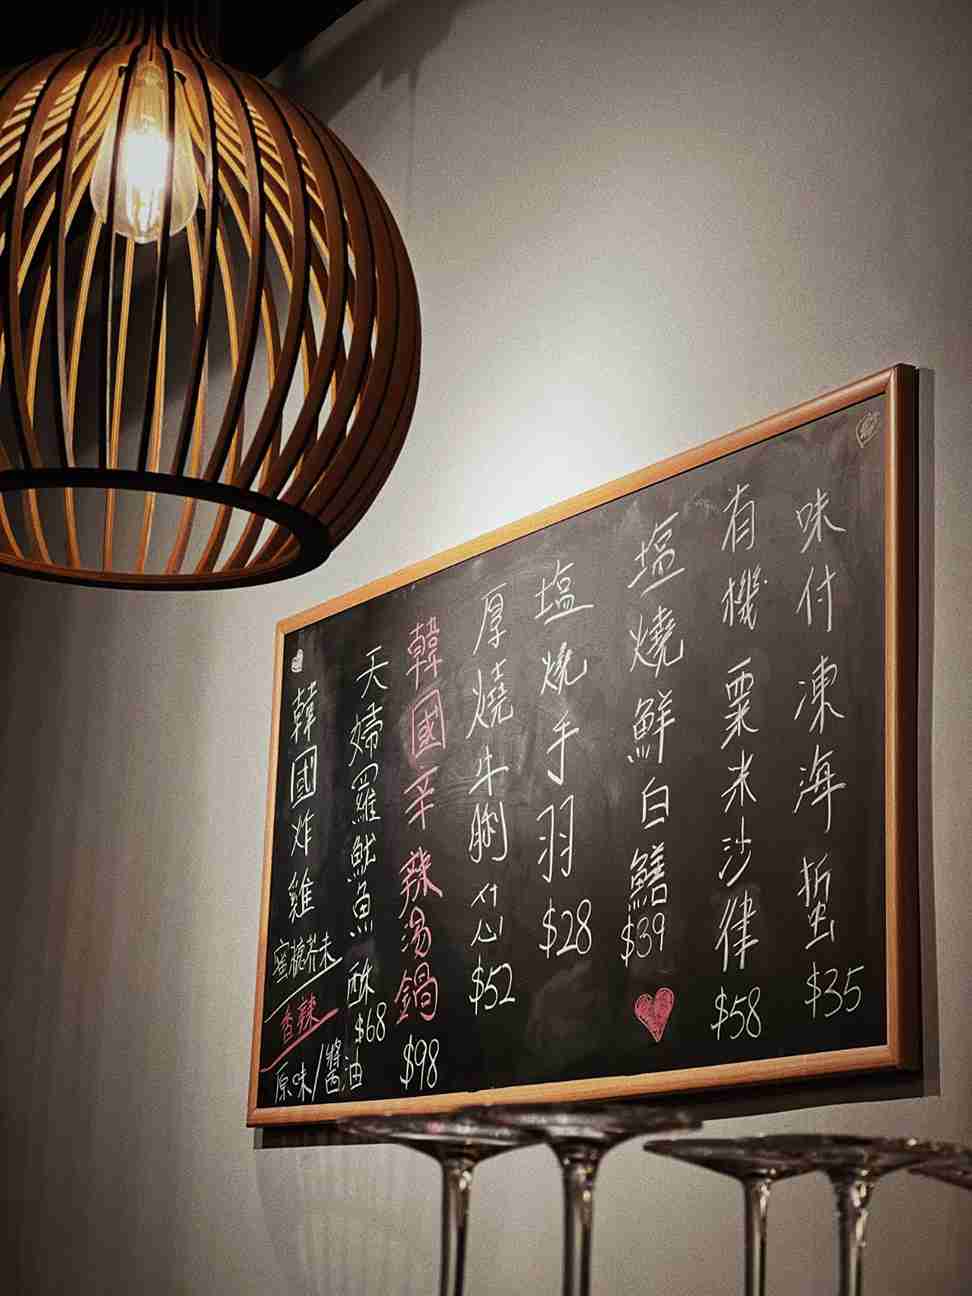 味付凍海蜇 $35
有機粟米沙律 $58
塩燒鮮白鱔 $39
塩燒手羽 $28
厚燒牛脷 $52
韓國辛辣湯鍋 $98
天婦羅魷魚酥 $68
韓國炸雞
蜜糖芥末
香辣
原味/醬油